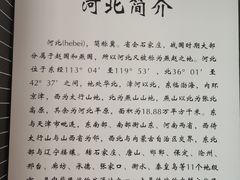 河北简介
河北(hebei)，简称冀。省会石家庄，战国时期大部
分属于赵国和燕国，所以河北又被称为燕赵之地。河北
位于东经113°04′至119°53′，北36°01′至
42°37′之间，地处华北，漳河以北，东临渤海，内环
京津，西为太行山地，北为燕山山地，燕山以北为张北
高原，其余为河北平原，面积为18.88万平方千米。东
与天津市毗连，东南部、南部衔山东、河南两省，西倚
太行山与山西省为邻，西北与内蒙古自治区交界，东北
部与辽宁接壤。辖石家庄、唐山、邯郸、保定、沧州、
邢台、廊坊、承德、张家口、衡水、秦皇岛等11个地级